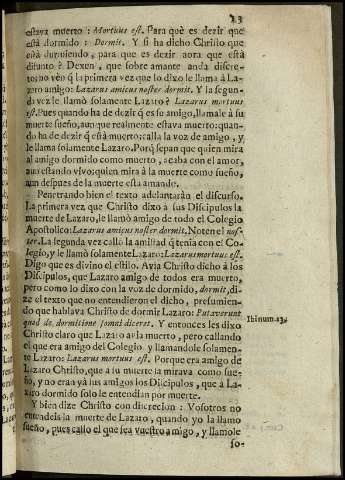 23
estava muerto: Mortuus est. Para què es dezir que
està dormido: Dormit. Y si ha dicho Christo que
està durmiendo, para que es dezir aora que està
difunto? Dexen, que sobre amante anda discre-
to: no vèn q̃ la primera vez que lo dixo le llama à La-
zaro amigo: Lazarus amicus noster dormit. Y la segun-
da vez le llamò solamente Lazaro? Lazarus mortuus
est. Pues quando ha de dezir q̃ es su amigo, llamale à su
muerte sueño, aun que realmente estava muerto: quan-
do ha de dezir q̃ està muerto: calla la voz de amigo, y
le llama solamente Lazaro. Porq̃ sepan que quien mira
al amigo dormido como muerto, acaba con el amor,
aun estando vivo: quien mira à la muerte como sueño,
aun despues de la muerte esta amando.
Penetrando bien el texto adelantaràn el discurso.
La primera vez que Christo dixo a sus Discipulos la
muerte de Lazaro, le llamò amigo de todo el Colegio
Apostolico: Lazarus amicus noster dormit, Noten el nos-
ter. La segunda vez callò la amistad q̃ tenia con el Co-
legio, y le llamò solamente Lazaro: Lazarus mortuus est.
Digo que es divino el estilo. Avia Christo dicho à los
Discipulos, que Lazaro amigo de todos era muerto,
pero como lo dixo con la voz de dormido, dormit, di-
ze el texto que no entendieron el dicho, presumien-
do que hablava Christo de dormir Lazaro: Putaverunt
quod de dormitione somni diceret. Y entonces les dixo
Ibi num. 13.
Christo claro que Lazaro avia muerto, pero callando
el que era amigo del Colegio y llamandole solamen-
te Lazaro: Lazarus mortuus est. Porque era amigo de
Lazaro Christo, que à su muerte la mirava como sue-
ño, y no eran yà sus amigos los Discipulos, que à La-
zaro dormido solo le entendian por muerte.
Y bien dize Christo con discrecion: Vosotros no
entendeis la muerte de Lazaro, quando yo la llamo
sueño, pues callo el que sea vuestro amigo, y llamole
so-